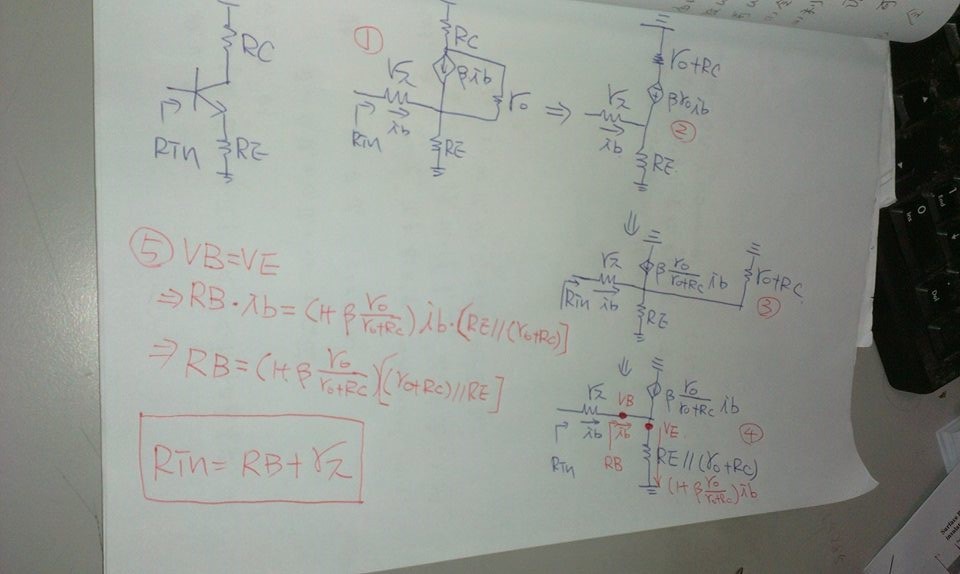 RC
Rin
RE
①
RC
rπ
βib
ro
ib
Rin
RE
⇒
ro+RC
rπ
βroib
ib
②
RE
⇓
rπ
β ro/(ro+RC) ib
ro+RC
Rin
ib
RE
③
⇓
rπ
VB
β ro/(ro+RC) ib
ib
ib
VE
④
Rin
RB
RE//(ro+RC)
(1+β ro/(ro+RC))ib
⑤ VB=VE
⇒ RB·ib=(1+β ro/(ro+RC))ib·[RE//(ro+RC)]
⇒ RB=(1+β ro/(ro+RC))[(ro+RC)//RE]
Rin=RB+rπ